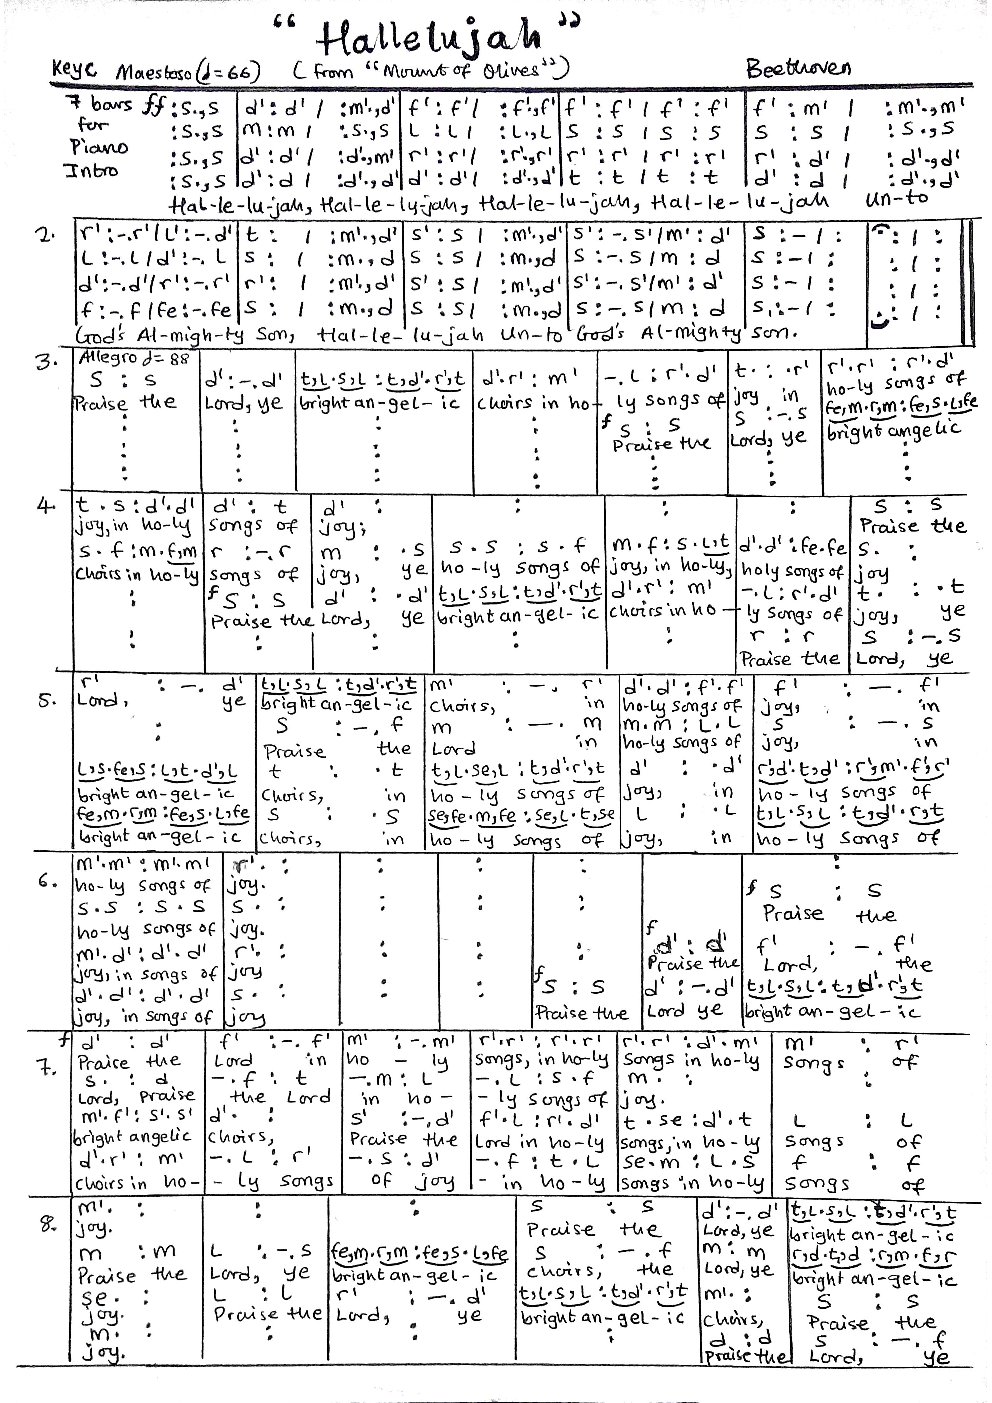 “Hallelujah”
Key C Maestoso (d=66) (from “Mount of Olives”) Beethoven
7 bars ff :s.,s | d' : d' / :m'.,d' | f' : f' / :f'.,f' | f' : f' / f' : f' | f' : m' / :m'.,m'
for :s.,s | m : m / :s.,s | L : L / :L.,L | s : s / s : s | s : s / :s.,s
Piano :s.,s | d' : d' / :d'.,m' | r' : r' / :r'.,r' | r' : r' / r' : r' | r' : d' / :d'.,d'
Intro :s.,s | d' : d / :d'.,d' | d' : d' / :d'.,d' | t : t / t : t | d' : d / :d'.,d'
Hal-le-lu-jah, Hal-le-ly-jah, Hal-le-lu-jah, Hal-le-lu-jah un-to
2. r' :-.r'/L' :-.d' | t : / :m'.,d' | s' : s / :m'.,d' | s' :-.s'/m' : d' | s :- / : | : / :
L :-.L/d' :-.L | s : / :m.,d | s : s / :m.,d | s :-.s/m : d | s :- / : | : / :
d' :-.d'/r' :-.r' | r' : / :m'.,d' | s' : s / :m'.,d' | s' :-.s'/m' : d' | s :- / : | : / :
f :-.f/fe :-.fe | s : / :m.,d | s : s / :m.,d | s :-.s/m : d | s :- / : | : / :
God's Al-migh-ty Son, Hal-le-lu-jah un-to God's Al-mighty son.
3. Allegro d=88
s : s | d' :-.d' | t,L.s,L : t,d'.r',t | d'.r' : m' | -.L : r'.d' | t. : .r' | r'.r' : r'.d'
Praise the | Lord, ye | bright an-gel-ic | choirs in ho- | ly songs of | joy, in | ho-ly songs of
: | : | : | : | f s : s | s :-.s | fe,m.r,m : fe,s.L,fe
Praise the | Lord, ye | bright angelic
4. t.s : d'.d' | d' : t | d' : | : | : | : | s : s
joy, in ho-ly | songs of | joy; | Praise the
s.f : m.f,m | r :-.r | m : .s | s.s : s.f | m.f : s.L,t | d'.d' : fe.fe | s. :
choirs in ho-ly | songs of | joy, ye | ho-ly songs of | joy, in ho-ly, | holy songs of | joy
: | f s : s | d' : .d' | t,L.s,L : t,d'.r',t | d'.r' : m' | -.L : r'.d' | t. : .t
Praise the | Lord, ye | bright an-gel-ic | choirs in ho- | ly songs of | joy, ye
: | : | : | : | : | r : r | s :-.s
Praise the | Lord, ye
5. r' :-. d' | t,L.s,L : t,d'.r',t | m' :-. r' | d'.d' : f'.f' | f' :-. f'
Lord, ye | bright an-gel-ic | choirs, in | ho-ly songs of | joy, in
: | s :-. f | m :-. m | m.m : L.L | s :-. s
Praise the | Lord in | ho-ly songs of | joy, in
L,s.fe,s : L,t.d',L | t : .t | t,L.se,L : t,d'.r',t | d' : .d' | r',d'.t,d' : r',m'.f',r'
bright an-gel-ic | choirs, in | ho-ly songs of | joy, in | ho-ly songs of
fe,m.r,m : fe,s.L,fe | s : .s | se,fe.m,fe : se,L.t,se | L : .L | t,L.s,L : t,d'.r',t
bright an-gel-ic | choirs, in | ho-ly songs of | joy, in | ho-ly songs of
6. m'.m' : m'.m' | r'. : | : | : | : | : | :
ho-ly songs of | joy.
s.s : s.s | s. : | : | : | : | : | f s : s
ho-ly songs of | joy. | Praise the
m'.d' : d'.d' | r'. : | : | : | : | f d' : d' | f' :-. f'
joy, in songs of | joy | Praise the | Lord, the
d'.d' : d'.d' | s. : | : | : | f s : s | d' :-.d' | t,L.s,L : t,d'.r',t
joy, in songs of | joy | Praise the | Lord ye | bright an-gel-ic
7. f d' : d' | f' :-.f' | m' :-.m' | r'.r' : r'.r' | r'.r' : d'.m' | m' : r'
Praise the | Lord in | ho-ly | songs, in ho-ly | songs in ho-ly | songs of
s. : d | -.f : t | -.m : L | -.L : s.f | m. : | :
Lord, Praise | the Lord | in ho- | -ly songs of | joy.
m'.f' : s'.s' | d'. : | s' :-.d' | f'.L : r'.d' | t.se : d'.t | L : L
bright angelic | choirs, | Praise the | Lord in ho-ly | songs, in ho-ly | songs of
d'.r' : m' | -.L : r' | -.s : d' | -.f : t.L | se.m : L.s | f : f
choirs in ho- | -ly songs | of joy | - in ho-ly | songs in holy | songs of
8. m'. : | : | : | s : s | d' :-.d' | t,L.s,L : t,d'.r',t
joy. | Praise the | Lord, ye | bright an-gel-ic
m : m | L :-.s | fe,m.r,m : fe,s.L,fe | s :-. f | m : m | r,d.t,d : r,m.f,r
Praise the | Lord, ye | bright an-gel-ic | choirs, the | Lord, ye | bright an-gel-ic
se. : | L : L | r' :-. d' | t,L.s,L : t,d'.r',t | m'. : | s : s
joy. | Praise the | Lord, ye | bright an-gel-ic | choirs, | Praise the
m. : | : | : | : | d : d | s :-. f
joy. | Praise the | Lord, ye